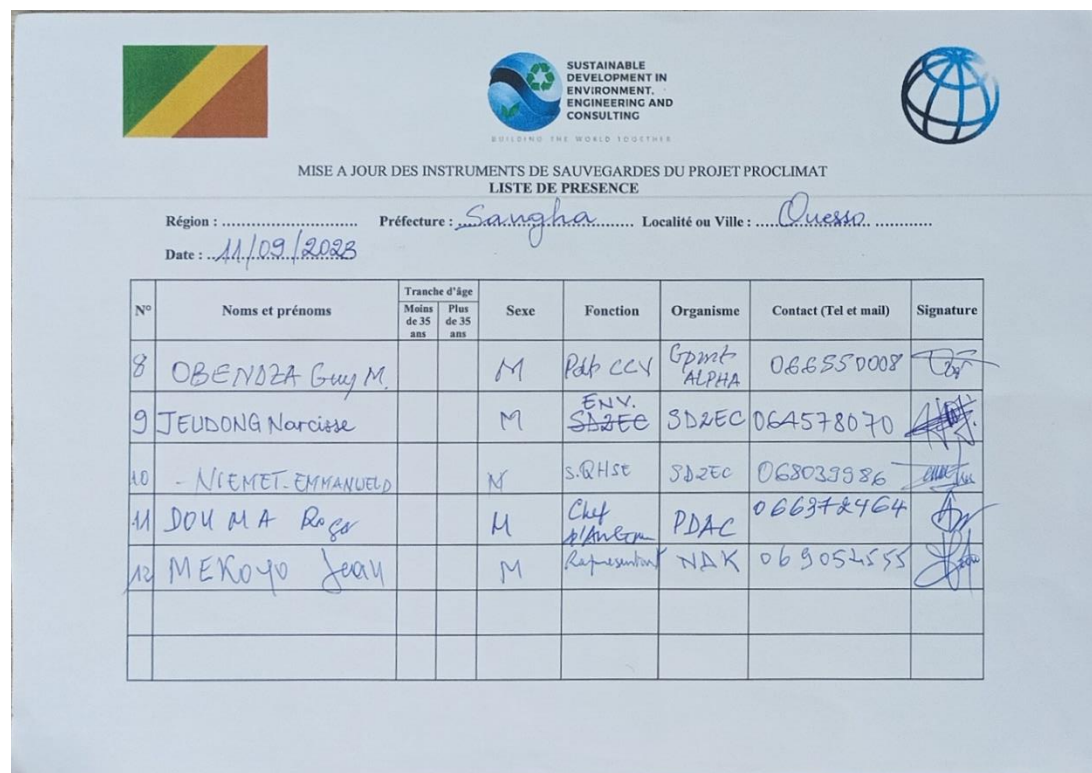 SUSTAINABLE
DEVELOPMENT IN
ENVIRONMENT.
ENGINEERING AND
CONSULTING
BUILDING THE WORLD TOGETHER
MISE A JOUR DES INSTRUMENTS DE SAUVEGARDES DU PROJET PROCLIMAT
LISTE DE PRESENCE
Région : ............................ Préfecture : Sangha Localité ou Ville : Ouesso
Date : 11/09/2023
N° Noms et prénoms Tranche d'âge Moins de 35 ans Plus de 35 ans Sexe Fonction Organisme Contact (Tel et mail) Signature
8 OBENDZA Guy M. M CCV Gpmt ALPHA 066550008
9 JEUDONG Narcisse M ENV. SD2EC SD2EC 064578070
10 - NIEMET-EMMANUEL M S.QHSE SD2EC 068039986
11 DOUMA Roger M Chef d'Antenne PDAC 066372464
12 MEKOYO Jean M Representant NDK